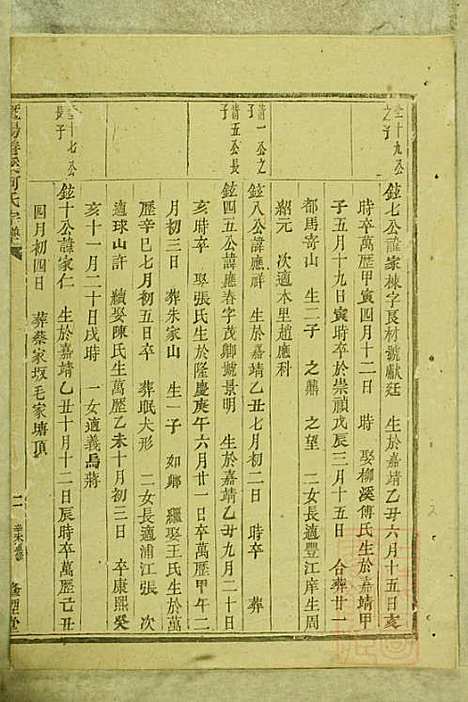 全十九公之子
鉉七公諱家棟字良材號獻廷 生於嘉靖乙丑六月十五日亥
時卒萬歷甲寅四月十二日 時 娶柳溪傅氏生於嘉靖甲
子五月十九日寅時卒於崇禎戊辰三月十五日 合葬廿一
都馬嵜山 生二子 之鼎 之望 二女長適豐江庠生周
紹元 次適木里趙應科
一公之子
鉉八公諱應祥 生於嘉靖乙丑七月初二日 時卒 葬
五公長子
鉉四五公諱應春字茂卿號景明 生於嘉靖乙丑九月二十日
亥時卒 娶張氏生於隆慶庚午六月廿一日卒萬歷甲午二
月初三日 葬朱家山 生一子 如 繼娶王氏生於萬
歷辛巳七月初五日卒 葬眠犬形 二女長適浦江張 次
適球山許 續娶陳氏生萬歷乙未十月初三日 卒康熙癸
亥十一月二十日戌時 一女適義烏蔣
全十七公長子
鉉十公諱家仁 生於嘉靖乙丑十月十二日辰時卒萬歷己丑
四月初四日 葬蔡家坂毛家塘頂
何氏宗譜
二
辛未
堂